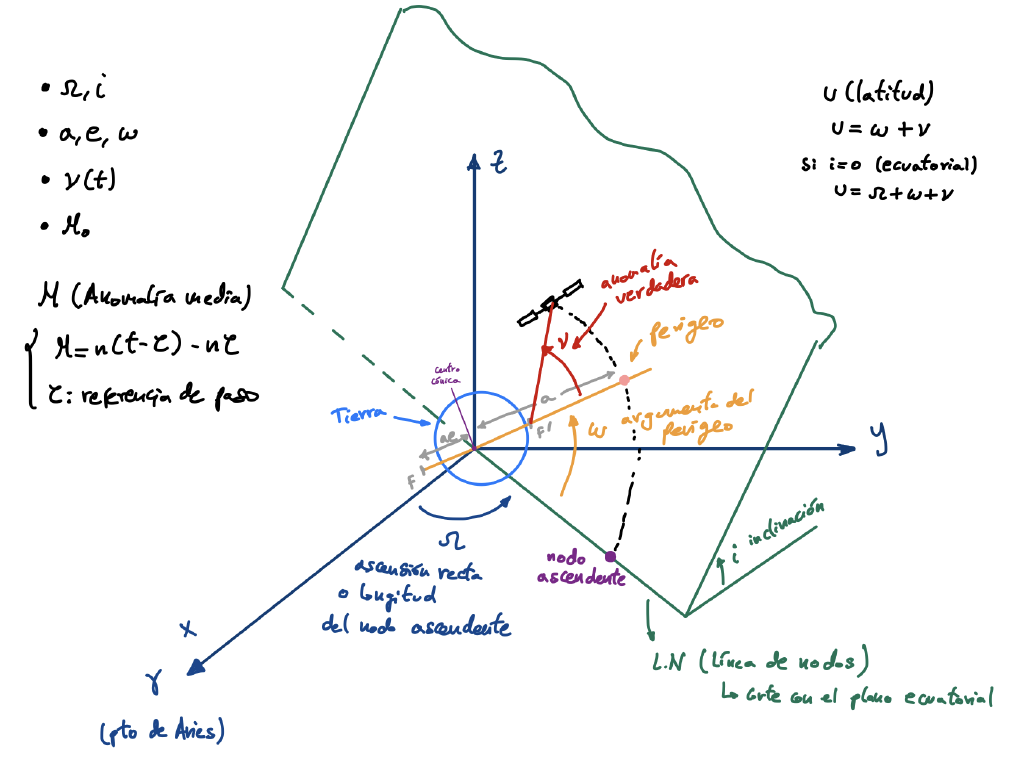 • Ω, i
• a, e, ω
• ν(t)
• M₀
M (Anomalía media)
M = n(t-τ) - nτ
τ: referencia de paso
u (latitud)
u = ω + ν
si i=0 (ecuatorial)
u = Ω + ω + ν
z
anomalía
verdadera
ν
Perigeo
centro
cónica
Tierra
a
ae
F'
F
ω argumento del
perigeo
y
Ω
ascensión recta
o longitud
del nodo ascendente
nodo
ascendente
i inclinación
x
γ
(pto de Aries)
L.N (Línea de nodos)
↳ corte con el plano ecuatorial